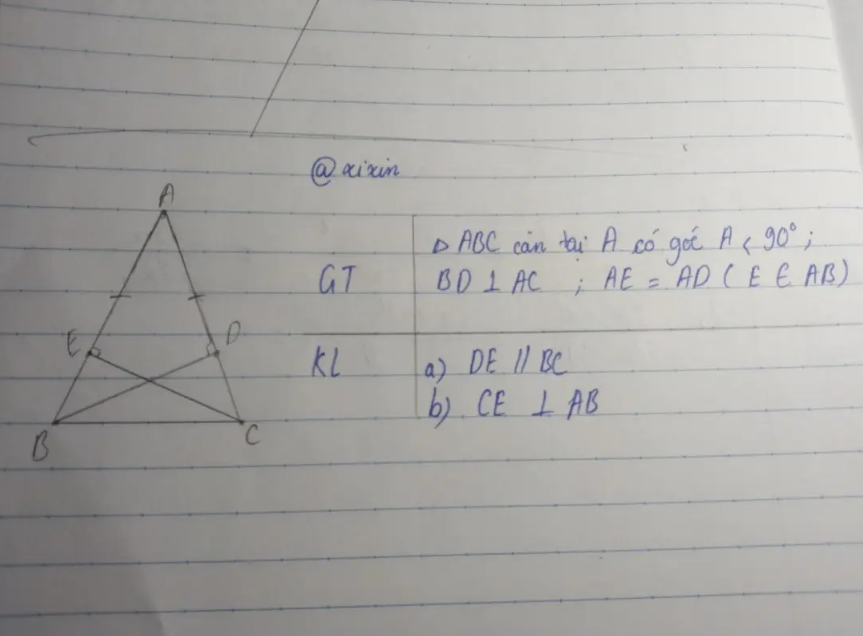 @xixin
A
E
D
B
C
GT
Δ ABC cân tại A có góc A < 90°;
BD ⊥ AC ; AE = AD ( E ∈ AB)
KL
a) DE // BC
b) CE ⊥ AB